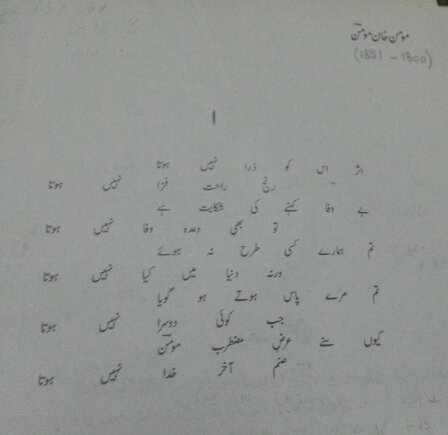 مومن خان مومنؔ
(1800 - 1851)
1
اثر اس کو ذرا نہیں ہوتا
رنج راحت فزا نہیں ہوتا
بے وفا کہنے کی شکایت ہے
تو بھی وعدہ وفا نہیں ہوتا
تم ہمارے کسی طرح نہ ہوئے
ورنہ دنیا میں کیا نہیں ہوتا
تم مرے پاس ہوتے ہو گویا
جب کوئی دوسرا نہیں ہوتا
کیوں سنے عرضِ مضطرب مومنؔ
صنم آخر خدا نہیں ہوتا